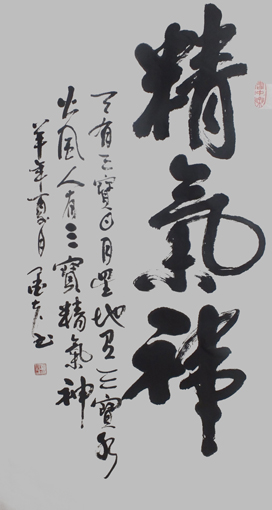 精氣神
天有三寶日月星地有三寶水
火風人有三寶精氣神
羊年夏月墨夫书